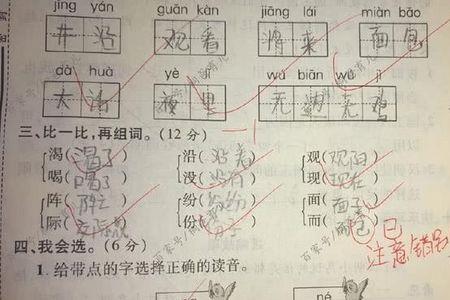 jǐng yán guān kàn jiāng lái miàn bāo
井 沿 观 看 将 来 面 包
dà huà yè wú biān wú jì
大 话 夜 里 无 边 无
三、比一比,再组词。(12 分) -1
渴(渴了) 沿(沿着) 观(观
喝(喝了) 没(没有) 现(现在)
阵(阵 纷(纷纷) 面(面子)
际( 份( 而(
注意
四、我会选。(6 分)
1. 给带点的字选择正确的读音。
né